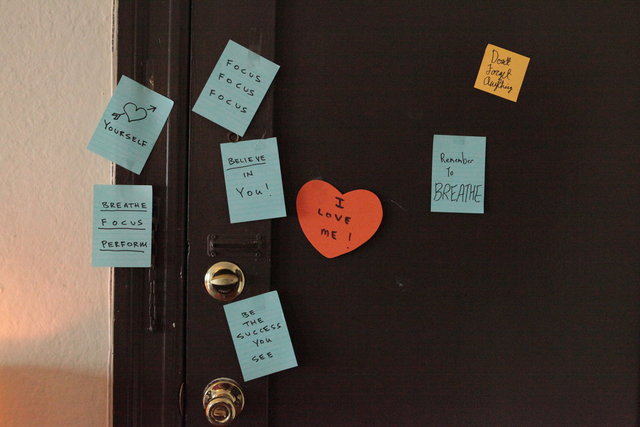 FOCUS
FOCUS
FOCUS
YOURSELF
BELIEVE
IN
YOU!
BREATHE
FOCUS
PERFORM
I
LOVE
ME!
BE
THE
SUCCESS
YOU
SEE
Don't
Forget
Anything
Remember
To
BREATHE